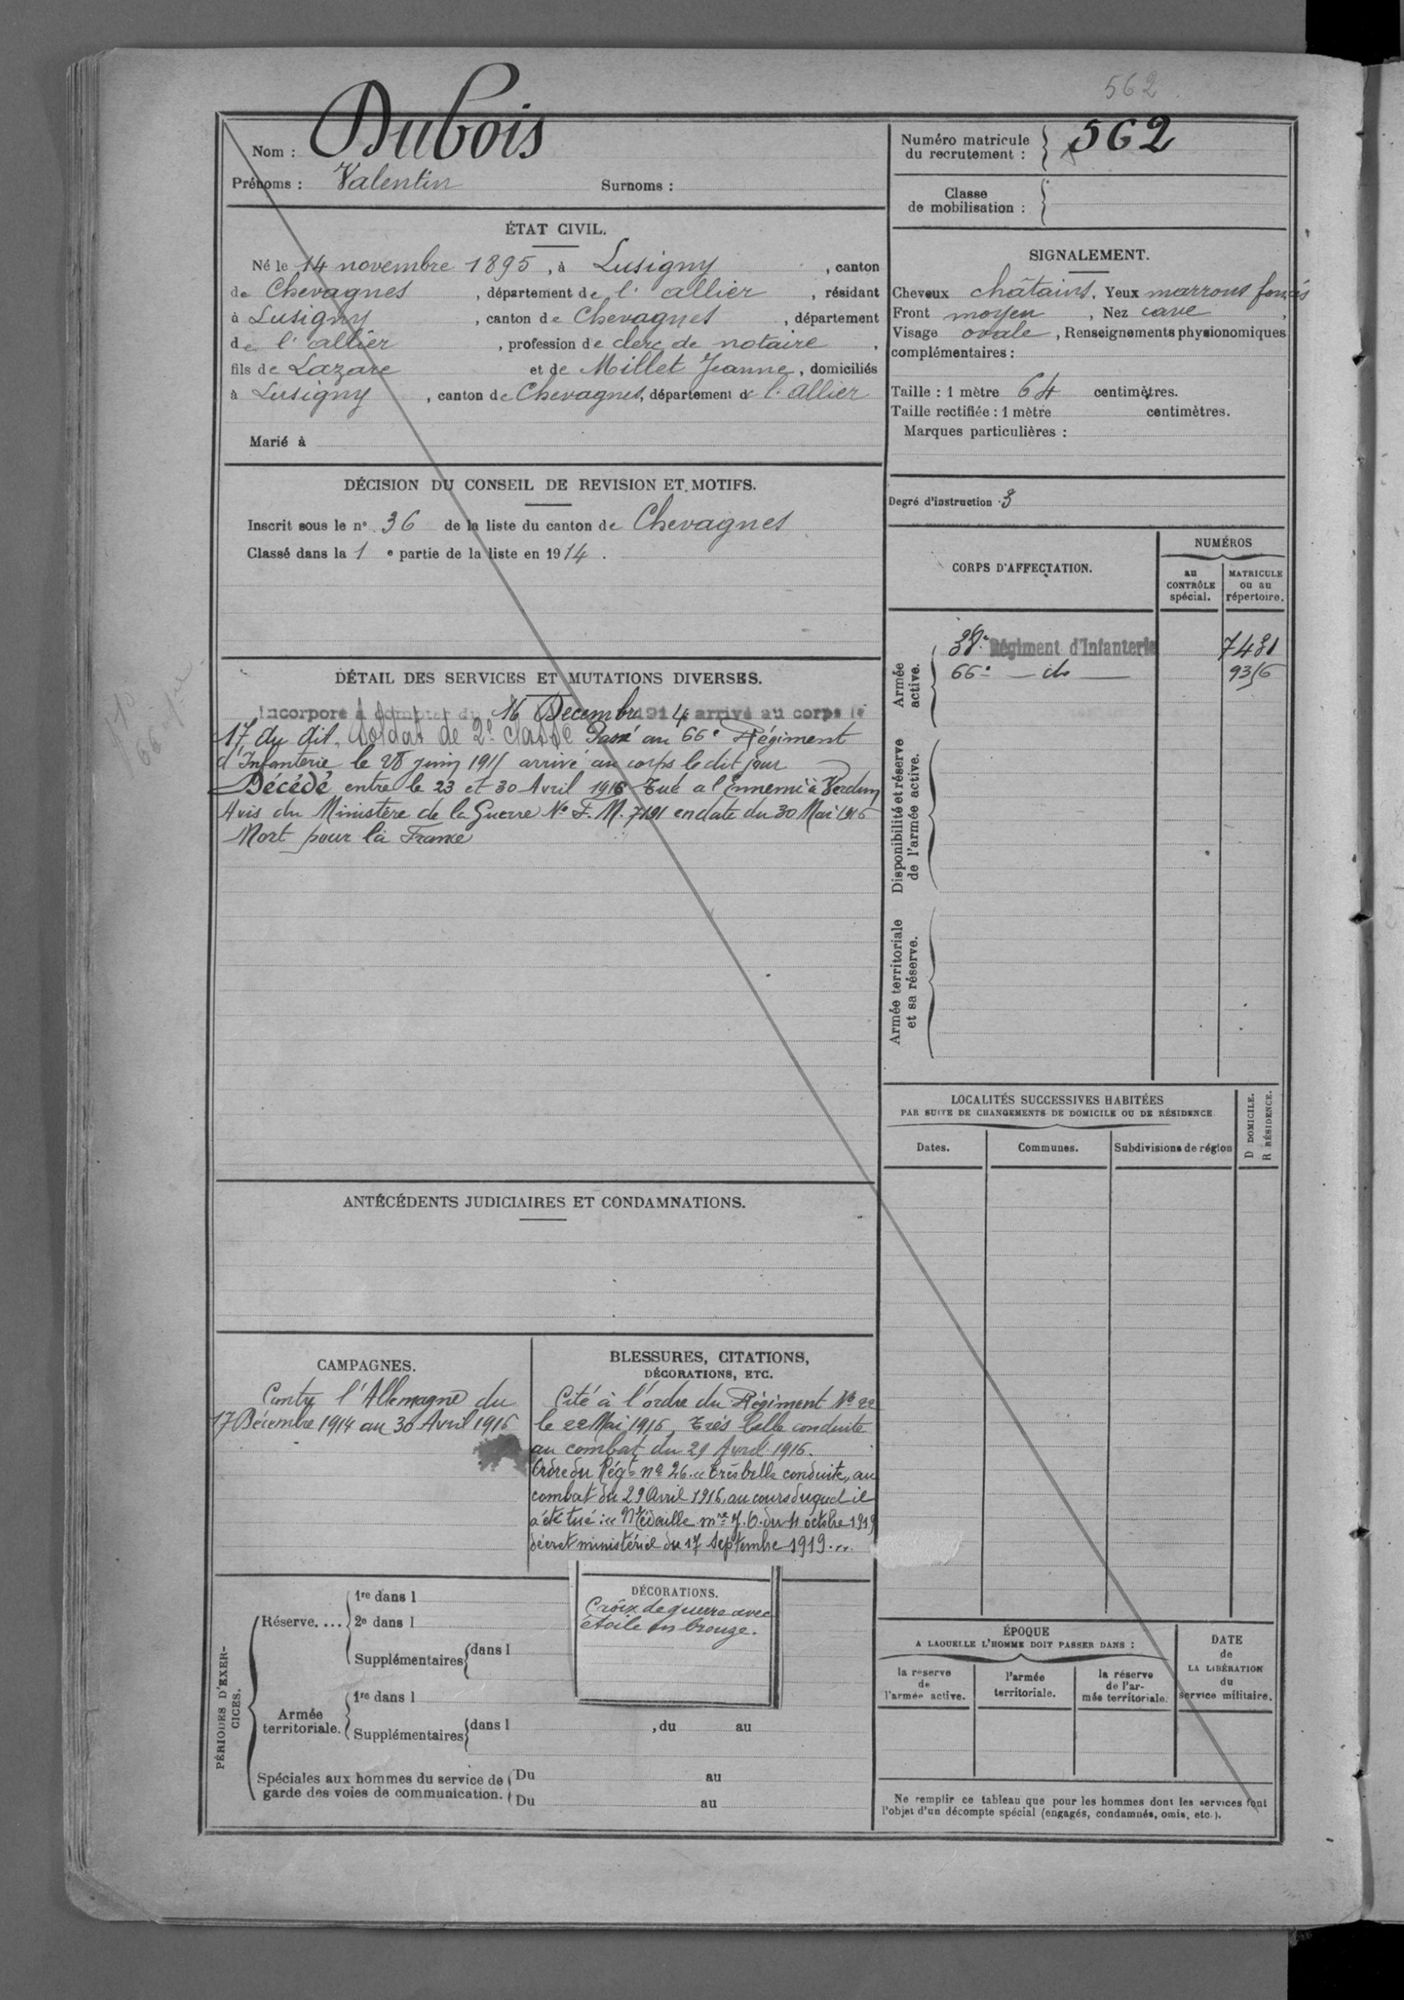 562
Nom : Dubois
Prénoms : Valentin Surnoms :
Numéro matricule
du recrutement : 562
Classe
de mobilisation :
ÉTAT CIVIL.
Né le 14 novembre 1895, à Lusigny, canton
de Chevagnes, département de l'allier, résidant
à Lusigny, canton de Chevagnes, département
de l'allier, profession de clerc de notaire,
fils de Lazare et de Millet Jeanne, domiciliés
à Lusigny, canton de Chevagnes, département de l'allier
Marié à
SIGNALEMENT.
Cheveux châtains. Yeux marrons foncés
Front moyen, Nez cave,
Visage ovale, Renseignements physionomiques
complémentaires :
Taille : 1 mètre 64 centimètres.
Taille rectifiée : 1 mètre centimètres.
Marques particulières :
Degré d'instruction 3
DÉCISION DU CONSEIL DE REVISION ET MOTIFS.
Inscrit sous le n° 36 de la liste du canton de Chevagnes
Classé dans la 1e partie de la liste en 1914.
CORPS D'AFFECTATION.
NUMÉROS
au
CONTRÔLE
spécial.
MATRICULE
ou au
répertoire.
Armée
active.
Régiment d'Infanterie
66e — do —
Disponibilité et réserve
de l'armée active.
Armée territoriale
et sa réserve.
DÉTAIL DES SERVICES ET MUTATIONS DIVERSES.
Incorporé à compter du 16 Décembre 1914 arrivé au corps le
17 du dit, Soldat de 2e classe Passé au 66e Régiment
d'Infanterie le 28 juin 1915 arrivé au corps le dit jour
Décédé entre le 23 et 30 Avril 1916 Tué a l'Ennemi à Verdun
Avis du Ministère de la Guerre No F. M. 7191 en date du 30 Mai 1916
Mort pour la France
ANTÉCÉDENTS JUDICIAIRES ET CONDAMNATIONS.
LOCALITÉS SUCCESSIVES HABITÉES
PAR SUITE DE CHANGEMENTS DE DOMICILE OU DE RÉSIDENCE
Dates. Communes. Subdivisions de région
D DOMICILE.
R RÉSIDENCE.
CAMPAGNES.
Contre l'Allemagne du
17 Décembre 1914 au 30 Avril 1916
BLESSURES, CITATIONS,
DÉCORATIONS, ETC.
Cité à l'ordre du Régiment No 22
le 22 Mai 1916, Très belle conduite
au combat du 29 Avril 1916.
Ordre du Régt no 26. "Très belle conduite, au
combat du 29 Avril 1916, au cours duquel il
a été tué" Médaille mre J. O. du 11 octobre 1919
décret ministériel du 17 Septembre 1919...
DÉCORATIONS.
Croix de guerre avec
étoile en bronze.
PÉRIODES D'EXER-
CICES.
Réserve....
1re dans l
2e dans l
Supplémentaires dans l
Armée
territoriale.
1re dans l
Supplémentaires dans l , du au
Spéciales aux hommes du service de
garde des voies de communication.
Du au
Du au
ÉPOQUE
A LAQUELLE L'HOMME DOIT PASSER DANS :
la réserve
de
l'armée active.
l'armée
territoriale.
la réserve
de l'ar-
mée territoriale.
DATE
de
LA LIBÉRATION
du
service militaire.
Ne remplir ce tableau que pour les hommes dont les services font
l'objet d'un décompte spécial (engagés, condamnés, omis, etc.).